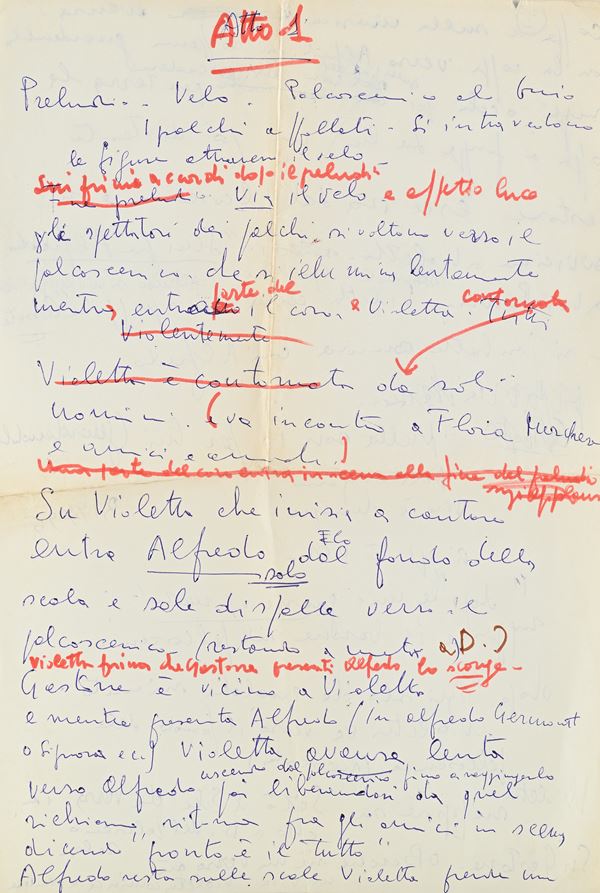 Atto 1
Preludio - Velo - Palcoscenico al buio
I palchi affollati - Si intravedono
le figure attraverso il velo
Sui primi accordi dopo il preludio
Fine preludio Via il velo e effetto luce
gli spettatori dei palchi si voltano verso il
palcoscenico che si illumina lentamente
mentre, entra parte del il coro e Violetta. Tutti contornata
Violentemente
Violetta è contornata da soli
uomini. (e va incontro a Flora Marchese
e amici e amiche)
Una parte del coro entra in scena alla fine del preludio
sugli applausi
Su Violetta che inizia a cantare
entra Alfredo dal fondo della
solo
scala e sale di spalle verso il
palcoscenico (restando a metà a D.)
Violetta prima che Gastone presenti Alfredo, lo scorge -
Gastone è vicino a Violetta
e mentre presenta Alfredo (In Alfredo Germont
o Signora ecc) Violetta avanza lenta
uscendo dal palcoscenico fino a raggiungerlo
verso Alfredo poi liberandosi da quel
richiamo, ritorna fra gli amici in scena
dicendo "pronto è il tutto"
Alfredo resta sulle scale Violetta prende un